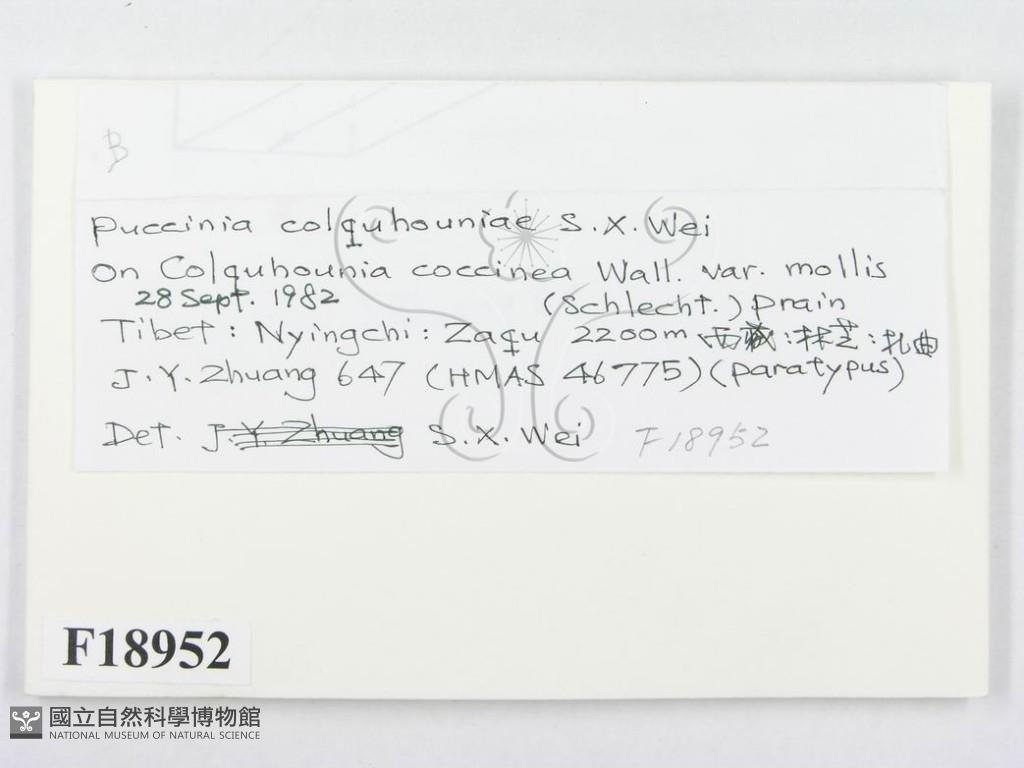 B
Puccinia colquhouniae S. X. Wei
On Colquhounia coccinea Wall. var. mollis
28 Sept. 1982 (Schlecht.) Prain
Tibet: Nyingchi: Zaqu 2200m 西藏:林芝:扎曲
J. Y. Zhuang 647 (HMAS 46775) (paratypus)
Det. J. Y. Zhuang S. X. Wei F18952
F18952
國立自然科學博物館
NATIONAL MUSEUM OF NATURAL SCIENCE